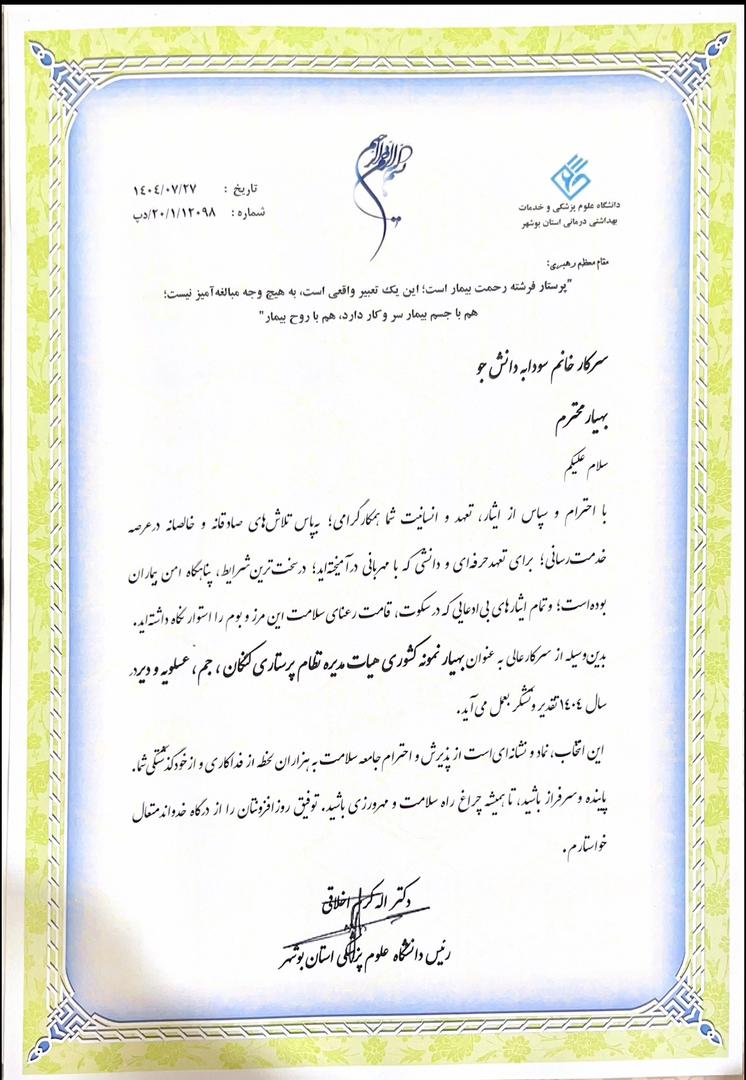 بسم الله الرحمن الرحیم
دانشگاه علوم پزشکی و خدمات
بهداشتی درمانی استان بوشهر
تاریخ : ۱٤۰٤/۰۷/۲۷
شماره : ۲۰/۱/۱۲۰۹۸/دپ
مقام معظم رهبری:
"پرستار فرشته رحمت بیمار است؛ این یک تعبیر واقعی است، به هیچ وجه مبالغه‌آمیز نیست؛
هم با جسم بیمار سر و کار دارد، هم با روح بیمار"
سرکار خانم سودابه دانش جو
بهیار محترم
سلام علیکم
با احترام و سپاس از ایثار، تعهد و انسانیت شما همکار گرامی؛ به‌پاس تلاش‌های صادقانه و خالصانه درعرصه
خدمت‌رسانی؛ برای تعهدحرفه‌ای و دانشی که با مهربانی درآمیخته‌اید؛ درسخت‌ترین شرایط، پناهگاه امن بیماران
بوده‌است؛ و تمام ایثارهای بی‌ادعایی که درسکوت، قامت رعنای سلامت این مرز و بوم را استوار نگاه داشته‌اید.
بدین‌وسیله از سرکارعالی به عنوان بهیار نمونه کشوری هیات مدیره نظام پرستاری کنگان ، جم، عسلویه و دیردر
سال ۱٤۰٤ تقدیر وتشکر بعمل می‌آید.
این انتخاب، نماد و نشانه‌ای‌است از پذیرش و احترام جامعه سلامت به‌هزاران لحظه از فداکاری و ازخودگذشتگی شما.
پاینده و سرفراز باشید، تا همیشه چراغ راه سلامت و مهرورزی باشید. توفیق روزافزونتان را از درگاه خداوندمتعال
خواستارم.
دکتر اله کرم اخلاقی
رئیس دانشگاه علوم پزشکی استان بوشهر